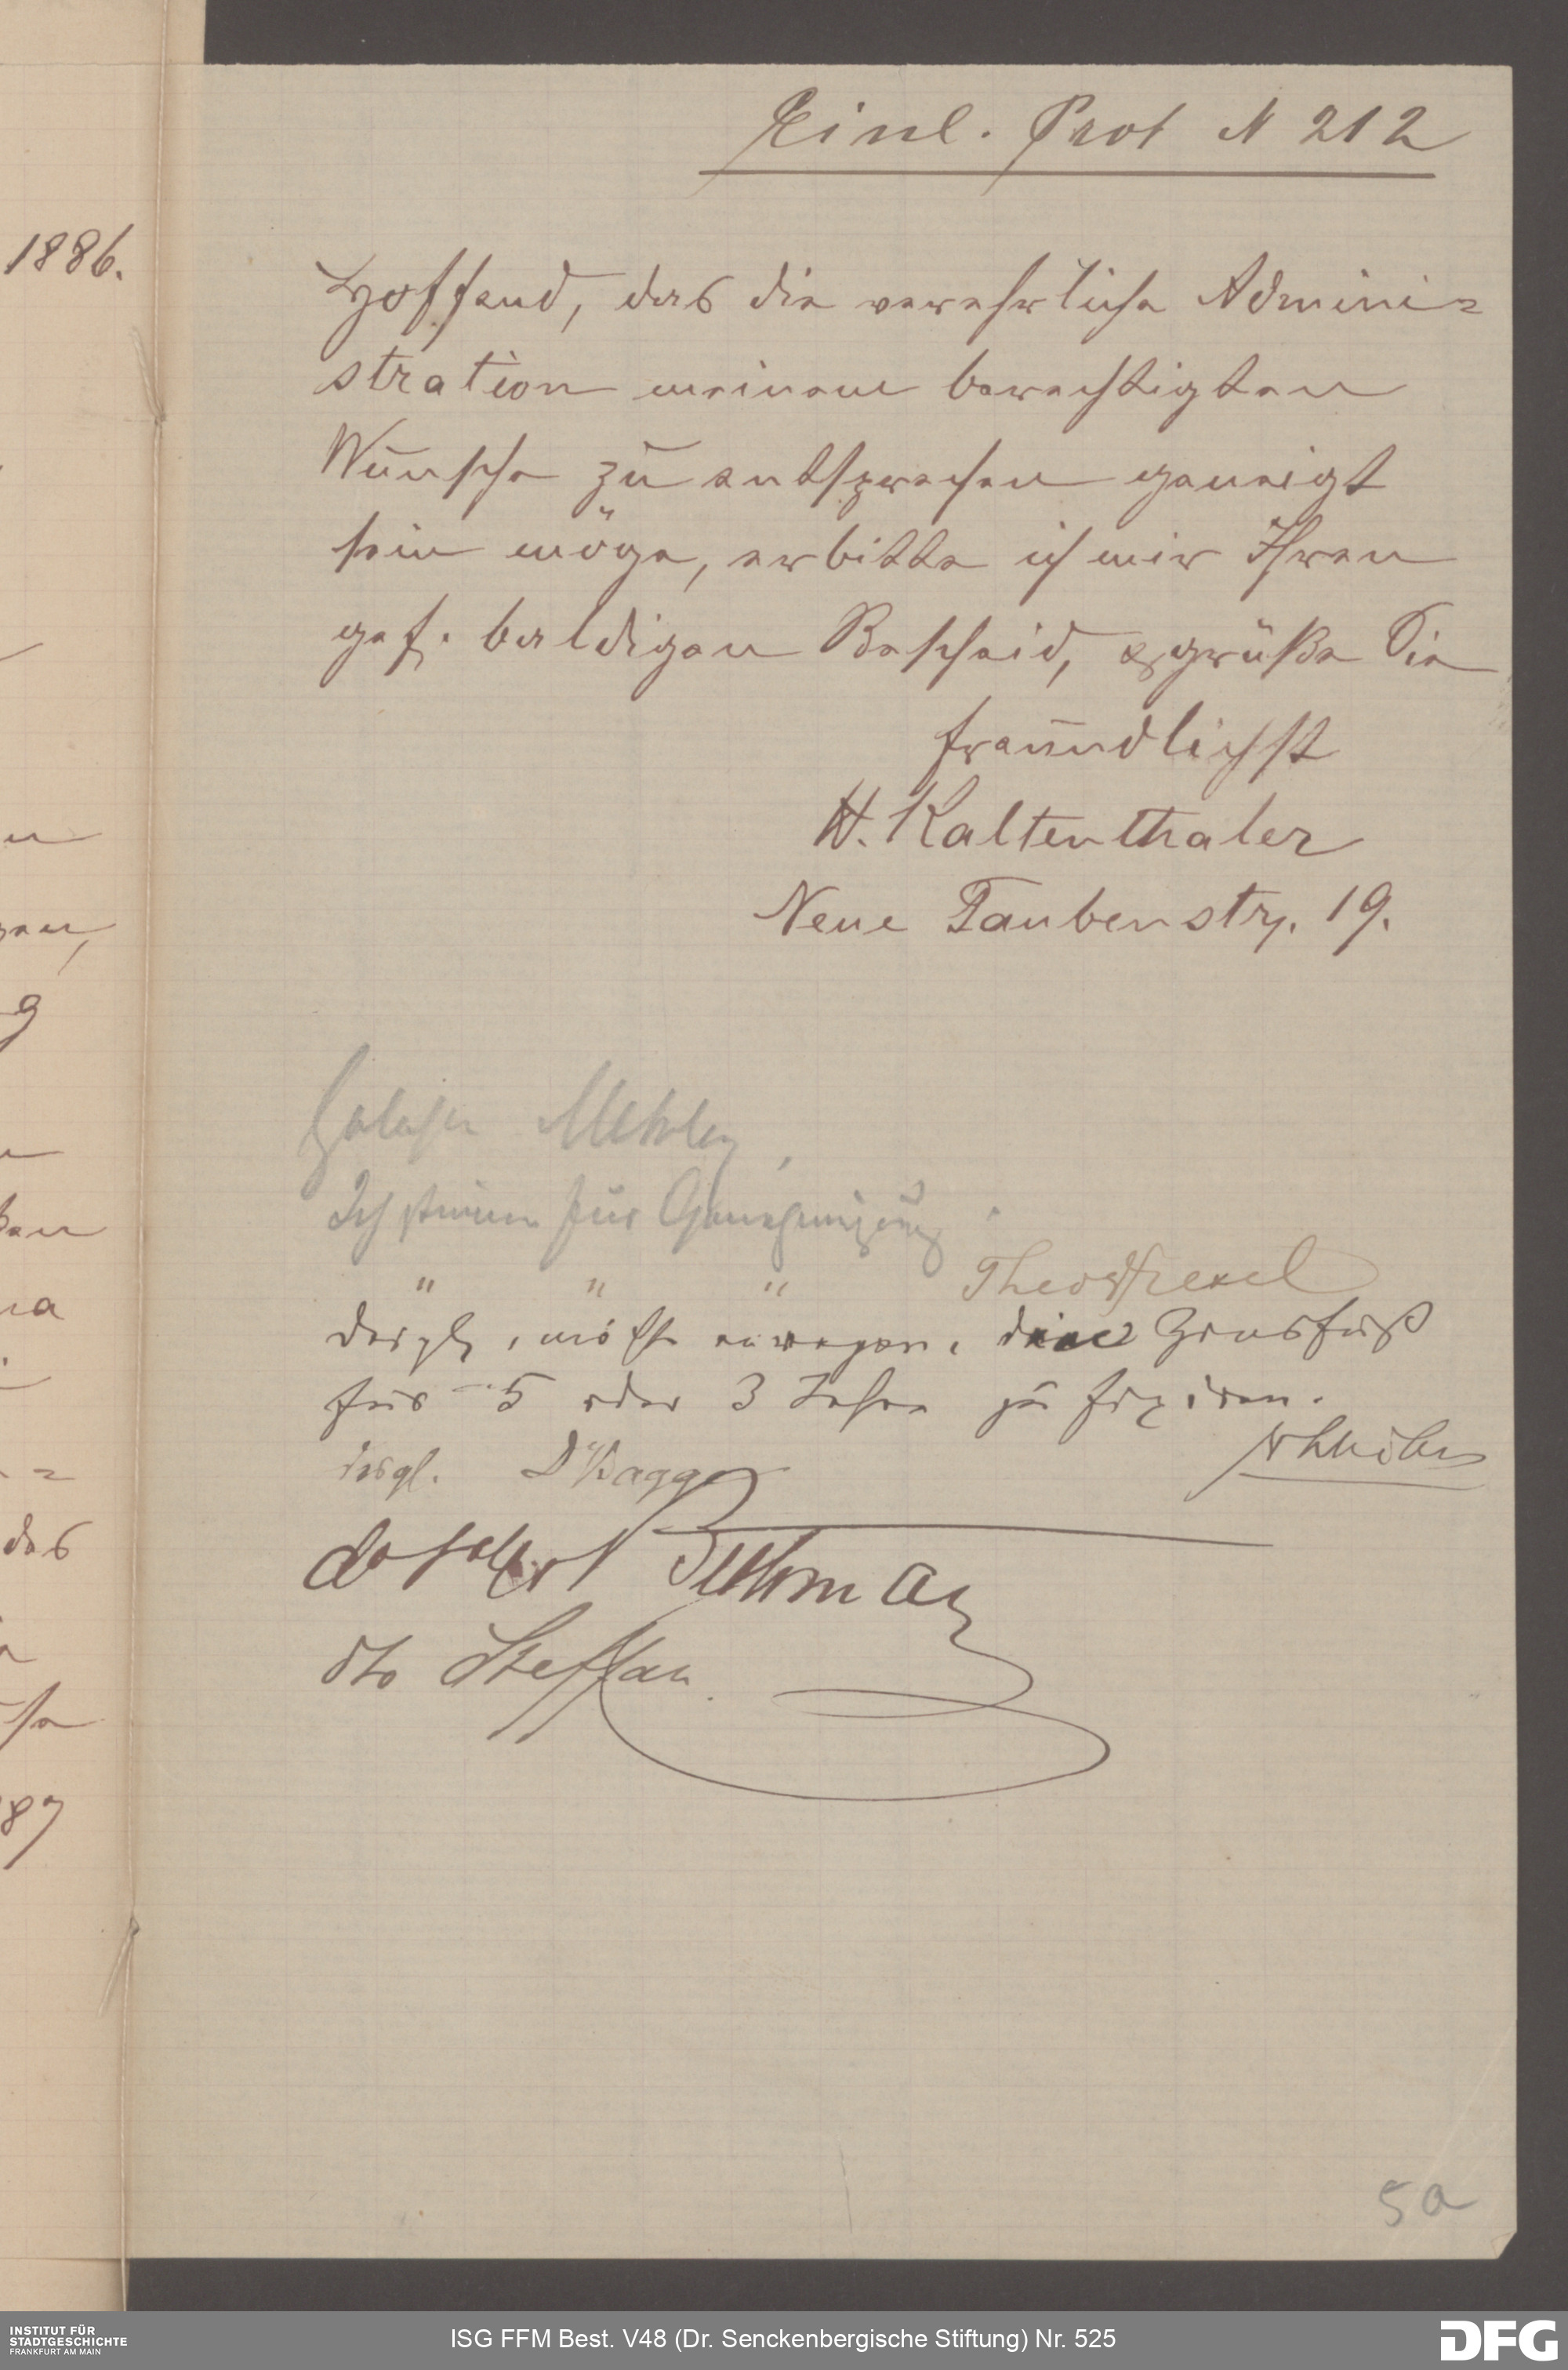 Einl. Prot N 212
1886.
Hoffend, das die verehrliche Admini=
stration meinem berechtigten
Wunsche zu entsprechen geneigt
sein möge, erbitte ich mir Ihren
gef. baldigen Bescheid, & grüße Sie
freundlichst
H. Kaltenthaler
Neue Taubenstr. 19.
Ich stimme für Genehmigung.
" " " Theo
desgl, möchte erwegen, den Zinsfuß
für 5 oder 3 Jahre zu fixiren.
desgl. Dr Bagge
do
dto Steffan.
das
87
5a
INSTITUT FÜR
STADTGESCHICHTE
FRANKFURT AM MAIN
ISG FFM Best. V48 (Dr. Senckenbergische Stiftung) Nr. 525
DFG